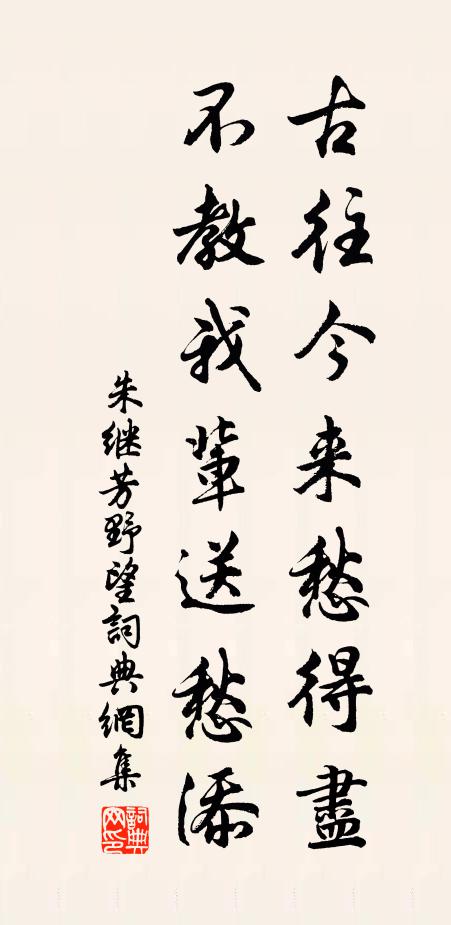 古往今来愁得盡
不教我輩送愁添
朱继芳野望詞典網集
詞典網印